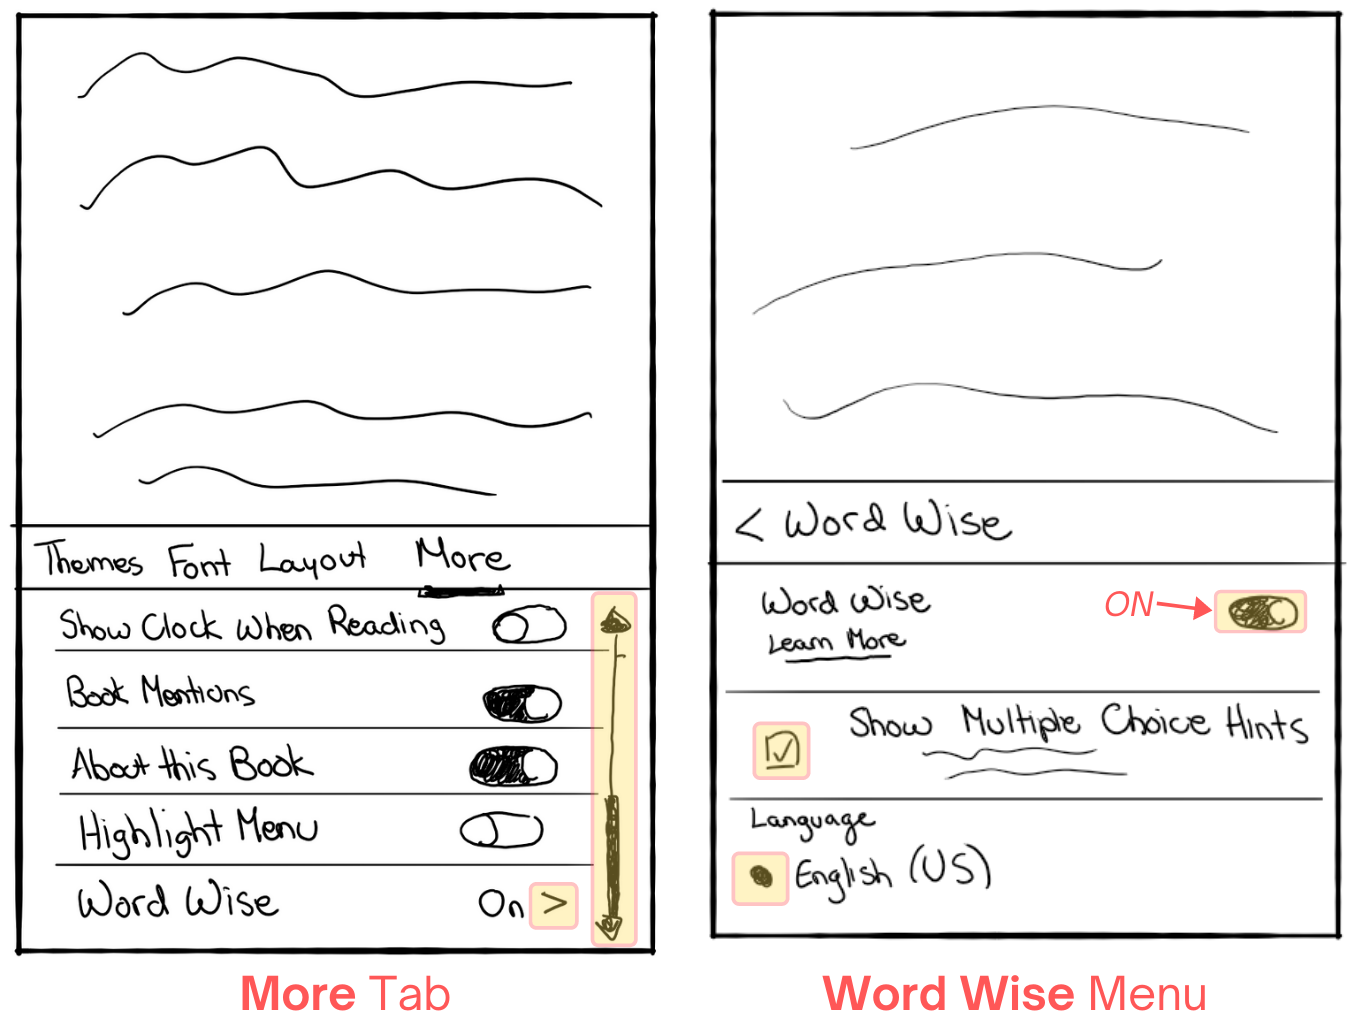 Themes Font Layout More
Show Clock When Reading
Book Mentions
About this Book
Highlight Menu
Word Wise On >
More Tab
< Word Wise
Word Wise
ON
Learn More
Show Multiple Choice Hints
Language
English (US)
Word Wise Menu